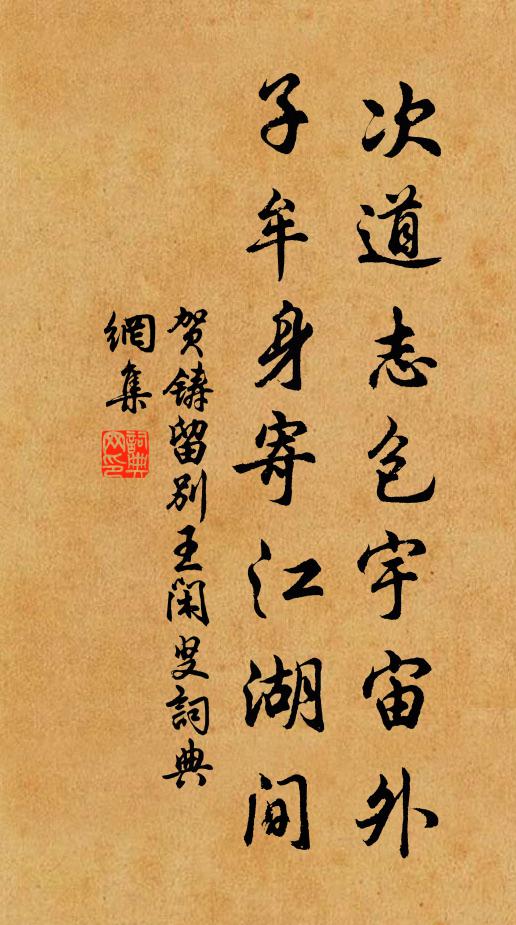 次道志包宇宙外
子牟身寄江湖间
贺铸留别王闲叟詞典
網集
詞典网印